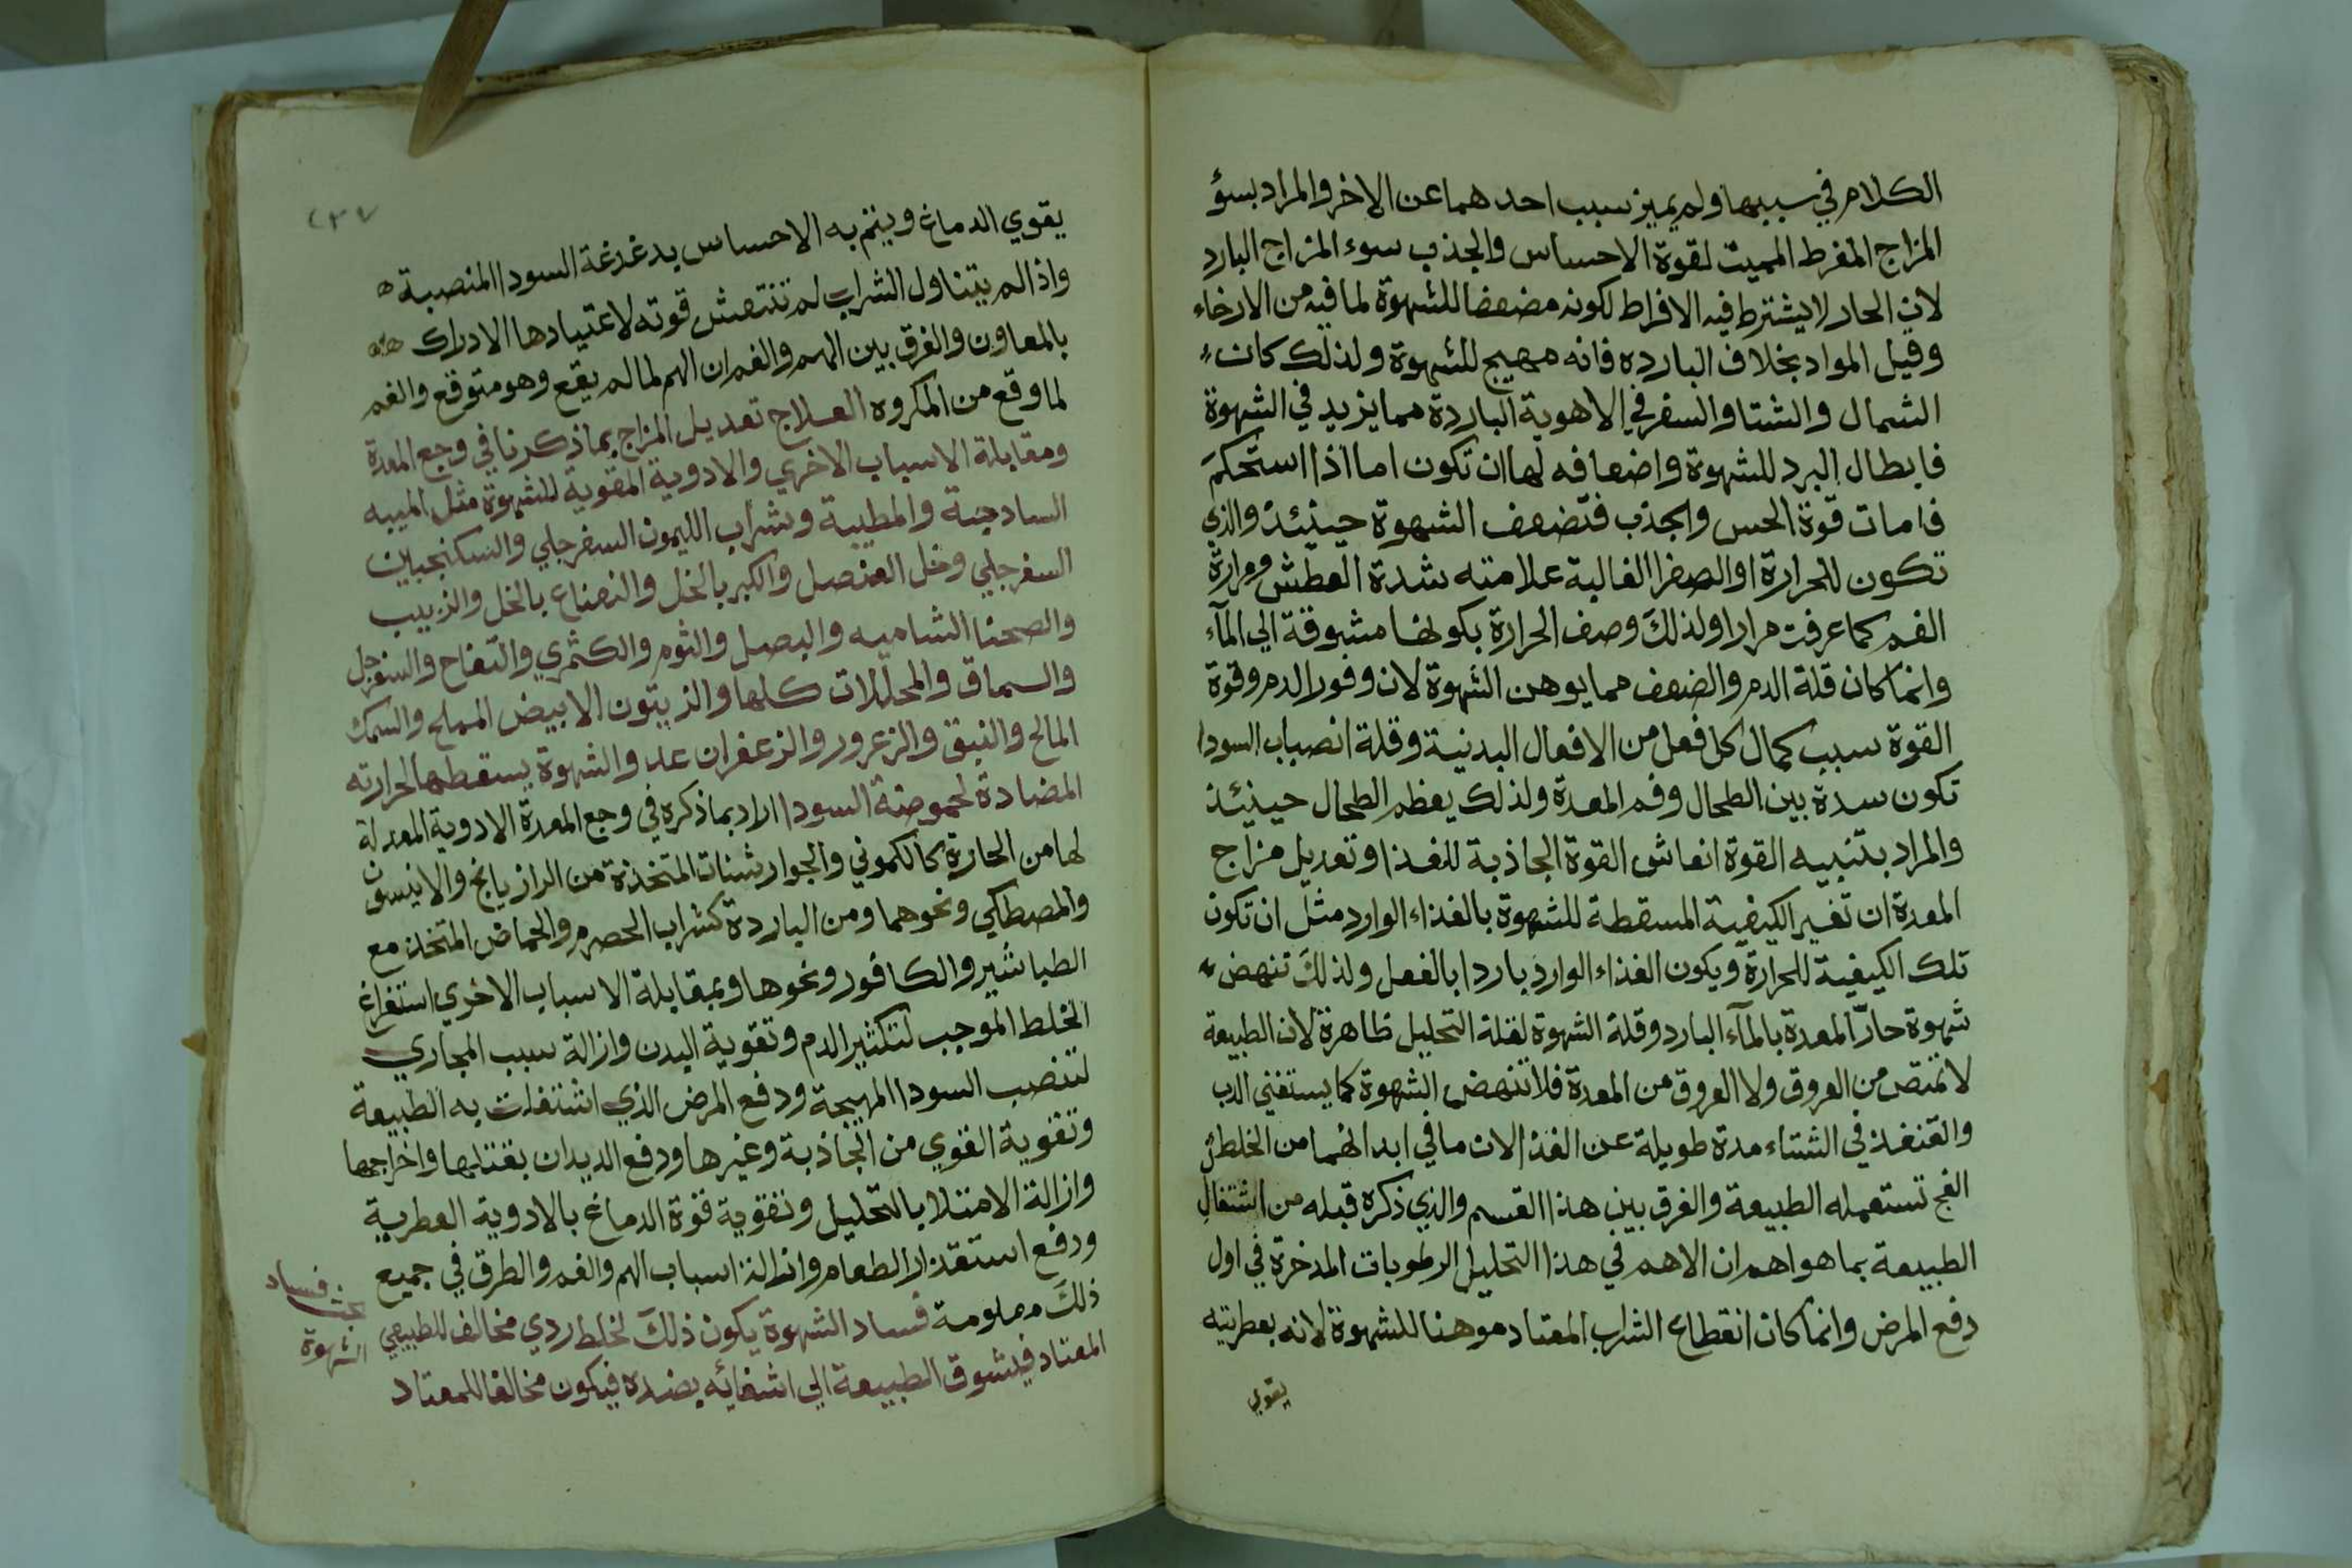 الكلام في سببها ولم يميز سبب احدهما عن الاخر والمراد بسؤ
المزاج المفرط المميت لقوة الاحساس والجذب سوء المزاج البارد
لان الحار لا يشترط فيه الافراط لكونه مضعفا للشهوة لما فيه من الارخاء
وقيل المواد بخلاف البارده فانه مهيج للشهوة ولذلك كان
الشمال والشتا والسفر في الاهوية الباردة مما يزيد في الشهوة
فابطال البرد للشهوة واضعافه لها ان تكون اما اذا استحكم
فامات قوة الحس والجذب فتضعف الشهوة حينئذ والذي
تكون للحرارة او الصفرا الغالبة علامته شدة العطش ومرارة
الفم كما عرفت مرارا ولذلك وصف الحرارة بكونها مشوقة الي المآء
وانما كان قلة الدم والضعف مما يوهن الشهوة لان وفور الدم وقوة
القوة سبب كمال كل فعل من الافعال البدنية وقلة انصباب السودا
تكون سدة بين الطحال وفم المعدة ولذلك يعظم الطحال حينئذ
والمراد بتنبيه القوة انعاش القوة الجاذبة للغذا وتعديل مزاج
المعدة ان تغير الكيفية المسقطة للشهوة بالغذاء الوارد مثل ان تكون
تلك الكيفية للحرارة ويكون الغذاء الوارد باردا بالفعل ولذلك تنهض
شهوة حارّ المعدة بالمآء البارد وقلة الشهوة لقلة التحليل ظاهرة لان الطبيعة
لا تمتص من العروق ولا العروق من المعدة فلا تنهض الشهوة كما يستغني الدب
والقنفذ في الشتاء مدة طويلة عن الغذا لان ما في ابدانهما من الخلط
الفج تستعمله الطبيعة والفرق بين هذا القسم والذي ذكره قبله من اشتغال
الطبيعة بما هو اهم ان الاهم في هذا التحليل الرطوبات المدخرة في اول
دفع المرض وانما كان انقطاع الشراب المعتاد موهنا للشهوة لانه بعطريته
يقوي
٢٣٧
يقوي الدماغ وينم به الاحساس بدغدغة السودا المنصبة
واذا لم يتناول الشراب لم تنتعش قوته لاعتيادها الادراك
بالمعاون والفرق بين الهم والغم ان الهم لما لم يقع وهو متوقع والغم
لما وقع من المكروه العلاج تعديل المزاج بما ذكرنا في وجع المعدة
ومقابلة الاسباب الاخري والادوية المقوية للشهوة مثل الميبه
الساذجة والمطيبة وشراب الليمون السفرجلي والسكنجبين
السفرجلي وخل العنصل والكبر بالخل والنعناع بالخل والزبيب
والصحنا الشاميه والبصل والثوم والكثمري والتفاح والسفرجل
والسماق والمخللات كلها والزيتون الابيض المملح والسمك
المالح والنبق والزعرور والزعفران عدو الشهوة يسقطها لحرارته
المضادة لحموضة السودا اراد بما ذكره في وجع المعدة الادوية المعدلة
لها من الحارة كالكموني والجوارشنات المتخذة من الرازيانج والانيسون
والمصطكي ونحوهما ومن الباردة كشراب الحصرم والحماض المتخذ مع
الطباشير والكافور ونحوها وبمقابلة الاسباب الاخري استفراغ
الخلط الموجب لتكثير الدم وتقوية البدن وازالة سبب المجاري
لتنصب السودا المهيجة ودفع المرض الذي اشتغلت به الطبيعة
وتقوية القوي من الجاذبة وغيرها ودفع الديدان بقتلها واخراجها
وازالة الامتلا بالتحليل وتقوية قوة الدماغ بالادوية العطرية
ودفع استقذار الطعام وازالة اسباب الهم والغم والطرق في جميع
ذلك معلومة فساد الشهوة يكون ذلك لخلط ردي مخالف للطبيعي
المعتاد فيشوق الطبيعة الي اشفائه بضده فيكون مخالفا للمعتاد
بحث فساد
الشهوة